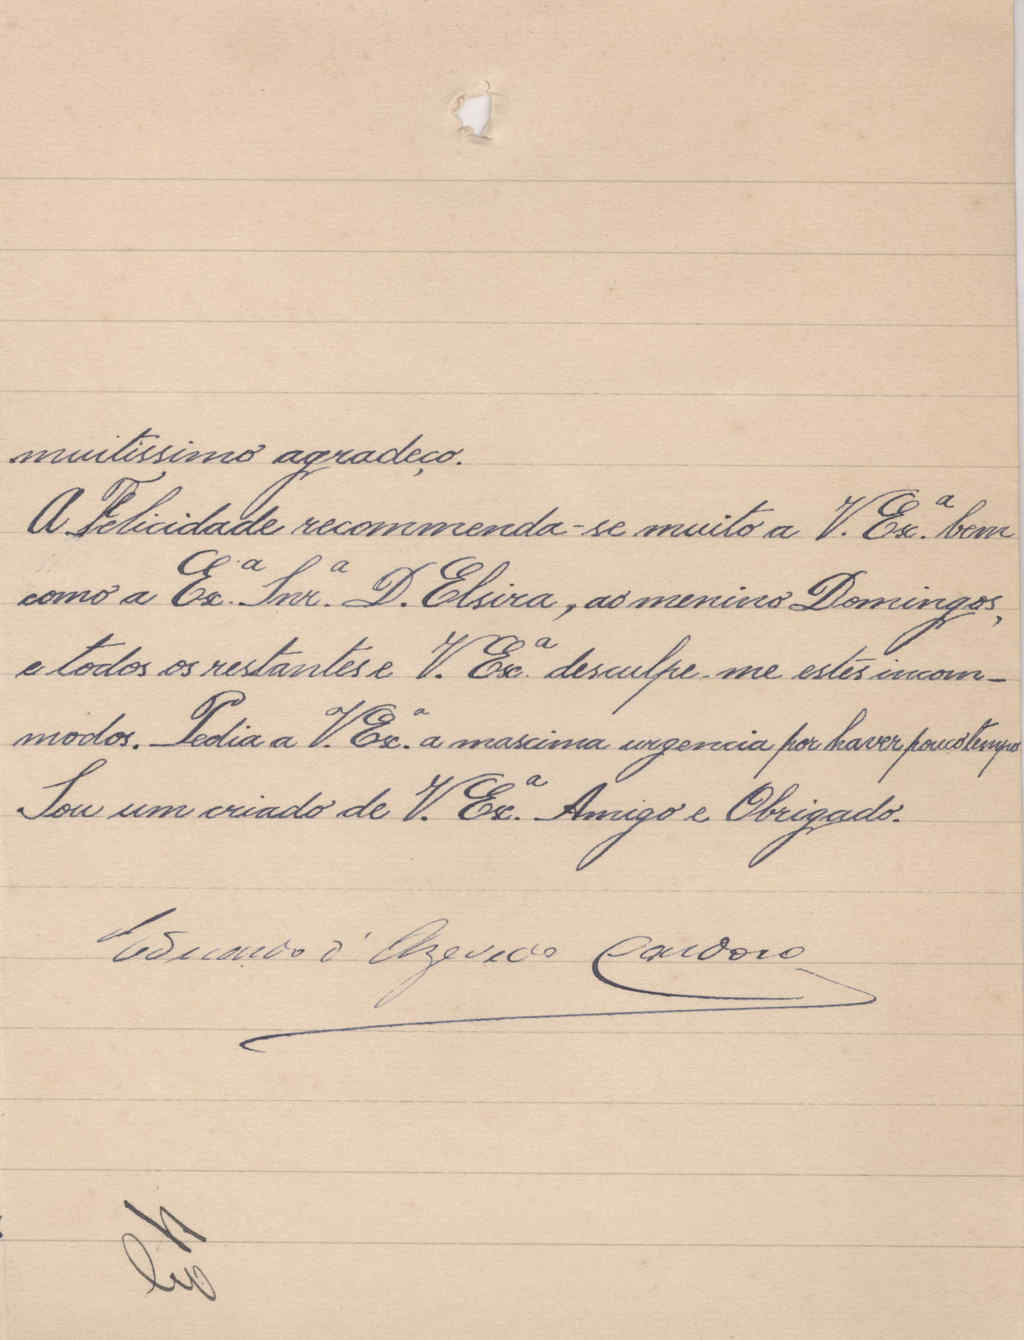 muitissimo agradeço.
A Felicidade recommenda-se muito a V. Ex.ª bem
como a Ex.ª Snr.ª D. Elsira, ao menino Domingos,
e todos os restantes e V. Ex.ª desculpe-me estes incom-
modos. Pedia a V. Ex.ª a maxima urgencia por haver pouco tempo
Sou um criado de V. Ex.ª Amigo e Obrigado.
Eduardo d'Azevedo Cardoso